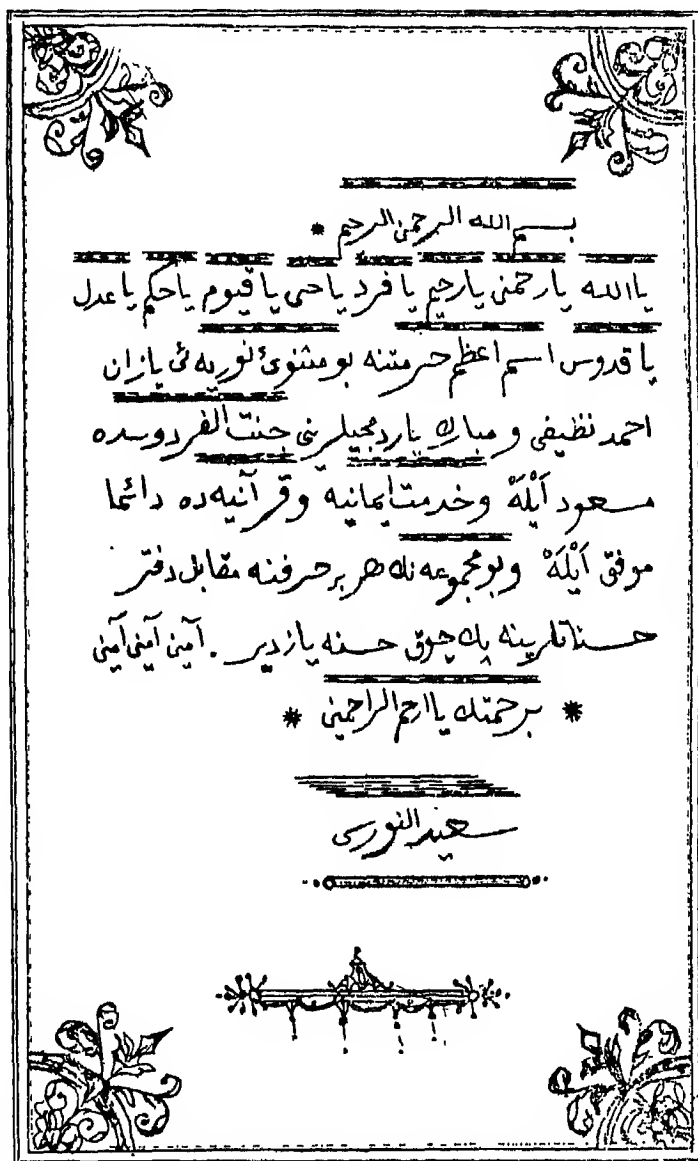 بسم الله الرحمن الرحيم *
يا الله يا رحمن يا رحيم يا فرد يا حي يا قيوم يا حكم يا عدل
يا قدوس اسم اعظم حرمتنه بو مثنوئ نوريه ئى يازان
احمد نظيفى و مبارك ياردمجيلرينى جنت الفردوسده
مسعود اَيْلَهْ و خدمت ايمانيه و قرآنيه ده دائما
موفق اَيْلَهْ و بو مجموعه نك هر بر حرفنه مقابل دفتر
حسناتلرينه پك چوق حسنه يازدير . آمين آمين آمين
* برحمتك يا ارحم الراحمين *
سعيد النورسى